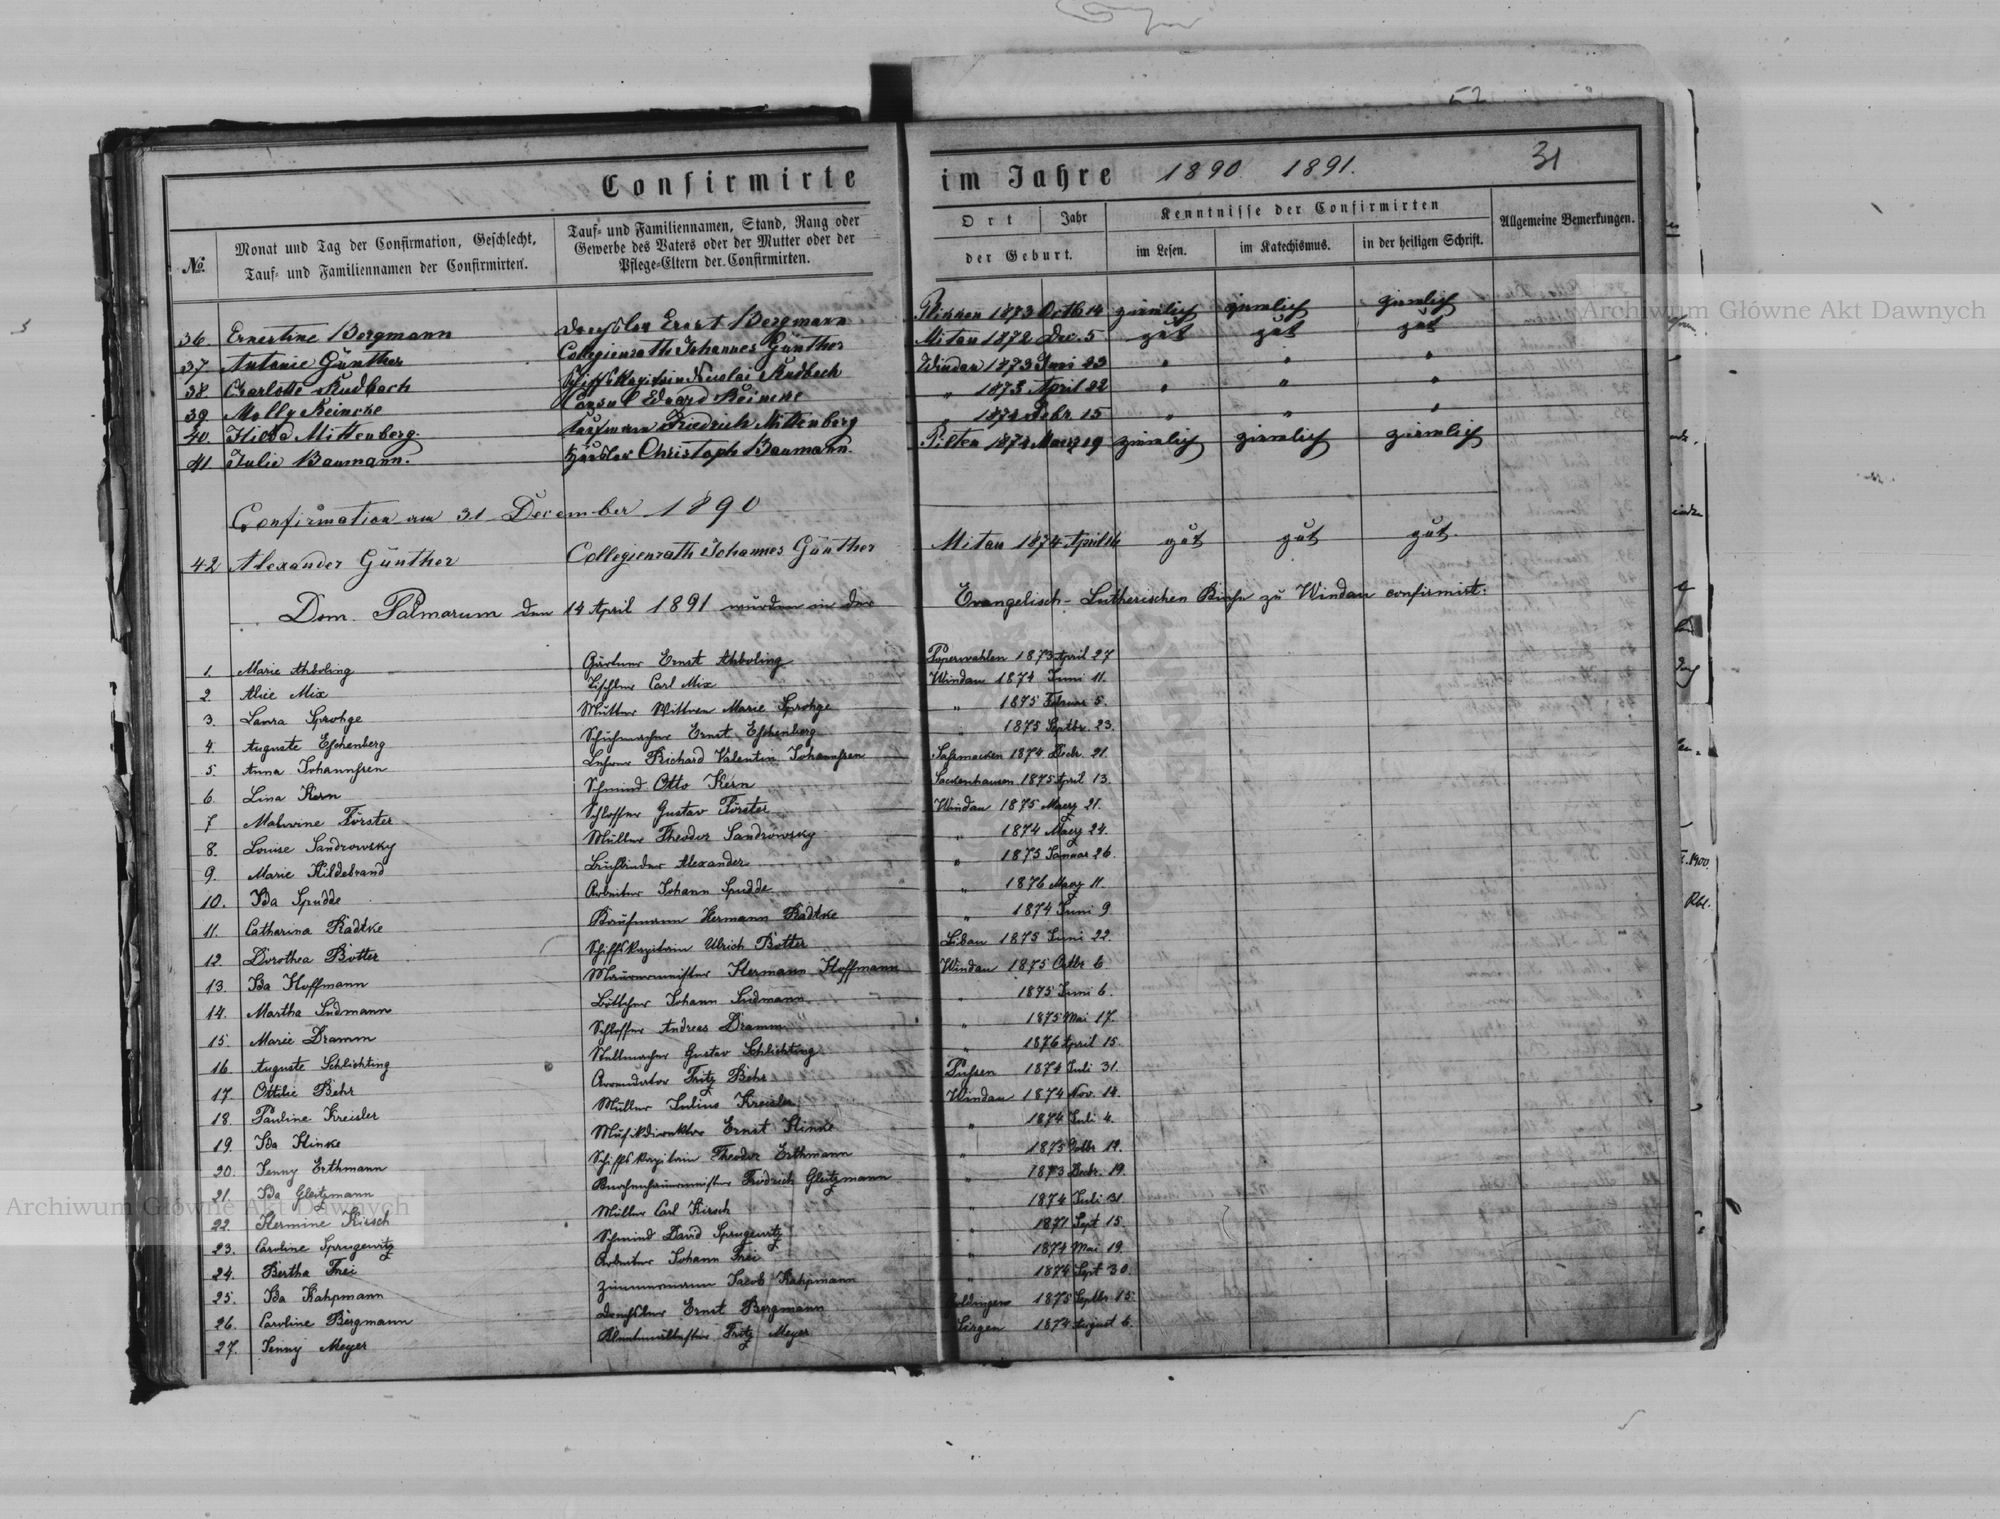 Confirmirte im Jahre 1890 1891. 31
No. Monat und Tag der Confirmation, Geschlecht, Tauf- und Familiennamen der Confirmirten. Tauf- und Familiennamen, Stand, Rang oder Gewerbe des Vaters oder der Mutter oder der Pflege-Eltern der Confirmirten. Ort Jahr der Geburt. Kenntnisse der Confirmirten im Lesen. im Katechismus. in der heiligen Schrift. Allgemeine Bemerkungen.
36. Ernestine Bergmann Drechsler Ernst Bergmann 1873 Octb 14 ziemlich ziemlich ziemlich
37. Antonie Günther Collegienrath Johannes Günther Mitau 1872 Dec. 5 gut gut gut
38. Charlotte Rudbach Schiffskapitain Nicolai Rudbach Windau 1873 Juni 23 " " "
39. Molly Reincke Consul Eduard Reincke " 1873 April 22 " " "
40. Hilda Mittenberg. Kaufmann Friedrich Mittenberg " 1874 Febr. 15 " " "
41. Julie Baumann. Christoph Baumann. Pilten 1874 Maerz 19 ziemlich ziemlich ziemlich
Confirmation am 31 December 1890
42 Alexander Günther Collegienrath Johannes Günther Mitau 1874 April 16 gut gut gut.
Dom. Palmarum den 14 April 1891 wurden in der Evangelisch-Lutherischen Kirche zu Windau confirmirt:
1. Marie Ahboling Gärtner Ernst Ahboling Poperwahlen 1873 April 27
2. Alice Mix Tischler Carl Mix Windau 1874 Juni 11.
3. Laura Sprohge Mutter Wittwe Marie Sprohge " 1875 Februar 5.
4. Auguste Eschenberg Schuhmacher Ernst Eschenberg " 1875 Septbr. 23.
5. Anna Johannsen Lehrer Richard Valentin Johannsen 1874 Decbr. 21.
6. Lina Kern Schmied Otto Kern Sackenhausen 1875 April 13.
7 Malwine Förster Schlosser Gustav Förster Windau 1875 Maerz 21.
8. Louise Sandrowsky Müller Theodor Sandrowsky " 1874 Maerz 24.
9. Marie Hildebrand Buchbinder Alexander " 1875 Januar 26.
10. Ida Spudde Arbeiter Johann Spudde " 1876 Maerz 11.
11. Catharina Radtke Kaufmann Hermann Radtke " 1874 Juni 9
12. Dorothea Botter Schiffskapitain Ulrich Botter Libau 1875 Juni 22.
13. Ida Hoffmann Maurermeister Hermann Hoffmann Windau 1875 Octbr 6
14. Martha Sudmann Böttcher Johann Sudmann " 1875 Juni 6.
15. Marie Dramm Schlosser Andreas Dramm " 1875 Mai 17.
16 Auguste Schlichting Stellmacher Gustav Schlichting " 1876 April 15.
17. Ottilie Behr Arrendator Fritz Behr 1874 Juli 31.
18. Pauline Kreisler Müller Julius Kreisler Windau 1874 Nov. 14.
19. Ida Hinke Musikdirektor Ernst Hinke " 1874 Juli 4.
20. Jenny Erthmann Schiffskapitain Theodor Erthmann " 1875 Octbr 12.
21. Ida Gleitzmann Friedrich Gleitzmann " 1873 Decbr. 19.
22. Hermine Kirsch Müller Carl Kirsch 1874 Juli 31
23. Caroline Sprugewitz Schmied David Sprugewitz " 1871 Sept 15.
24. Bertha Frei Arbeiter Johann Frei " 1874 Mai 19.
25. Ida Kahpmann Zimmermann Jacob Kahpmann " 1874 Sept 30.
26. Caroline Bergmann Drechsler Ernst Bergmann Goldingen 1875 Septbr 15.
27. Jenny Meyer Fritz Meyer Sirgen 1874 August 6.
Archiwum Główne Akt Dawnych
Archiwum Główne Akt Dawnych